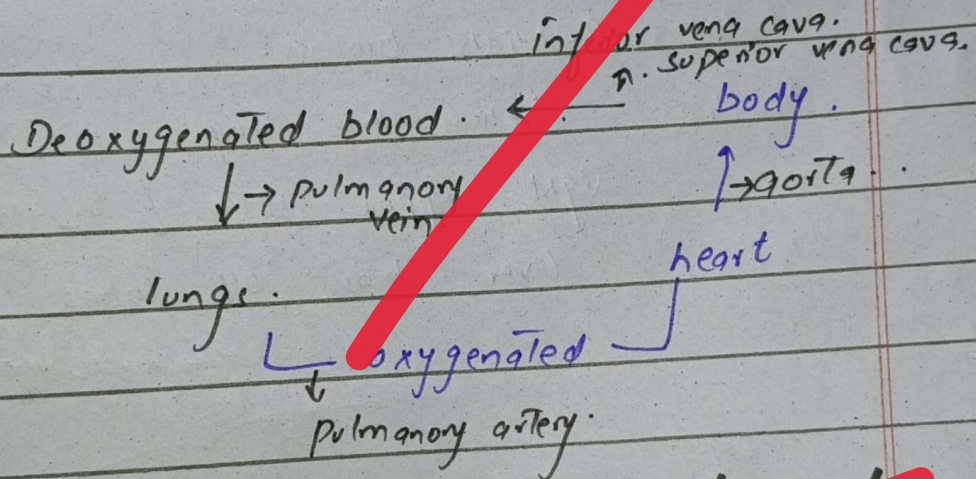 inferior vena cava.
n. superior vena cava.
body.
Deoxygenated blood. ←
↓→ pulmanory
vein
↑→aorta.
heart
lungs.
oxygenated
↓
pulmanory artery.